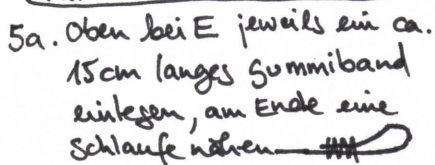 5a. Oben bei E jeweils ein ca.
15cm langes Gummiband
einlegen, am Ende eine
Schlaufe nähen